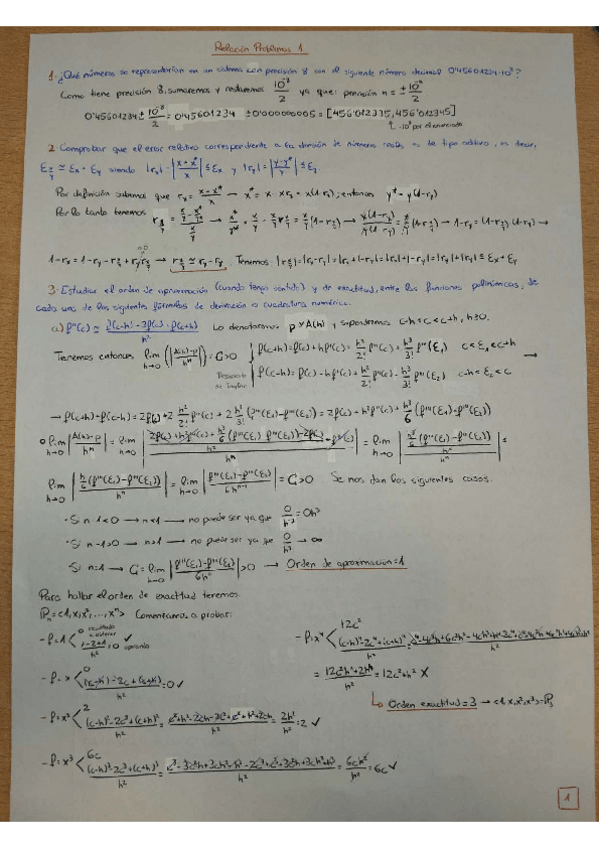 Relación Problemas 1
1. ¿Qué números se representarían en un sistema con precisión 8 con el siguiente número decimal 0'45601234·10³?
Como tiene precisión 8, sumaremos y restaremos 10⁻⁸/2 ya que: precisión n = ± 10⁻ⁿ/2
0'45601234 ± 10⁻⁸/2 = 0'45601234 ± 0'000000005 = [456'012335, 456'012345]
·10³ por el enunciado
2. Comprobar que el error relativo correspondiente a la división de números reales es de tipo aditivo, es decir,
E_{x/y} ≃ Ex + Ey siendo |rx| = |x-x*/x| ≤ Ex y |ry| = |y-y*/y| ≤ Ey
Por definición sabemos que rx = x-x*/x → x* = x - x rx = x(1-rx); entonces y* = y(1-ry)
Por lo tanto tenemos
1-rx = 1-ry - r_{x/y} + ry r_{x/y} → r_{x/y} ≃ rx - ry. Tenemos: |r_{x/y}| = |rx-ry| = |rx+(-ry)| = |rx|+|-ry| = |rx|+|ry| ≤ Ex + Ey
3. Estudiar el orden de aproximación (cuando tenga sentido) y de exactitud, entre las funciones polinómicas, de
cada una de las siguientes fórmulas de derivación o cuadratura numérica.
a) f''(c) ≃ f(c-h) - 2f(c) + f(c+h) / h² Lo denotaremos p ≃ A(h) y supondremos c-h < c < c+h, h>0.
Tenemos entonces lim h→0 (|A(h)-p| / hⁿ) = C > 0
f(c+h) = f(c) + hf'(c) + h²/2! f''(c) + h³/3! f'''(ξ1) c < ξ1 < c+h
Desarrollo de Taylor
f(c-h) = f(c) - hf'(c) + h²/2! f''(c) - h³/3! f'''(ξ2) c-h < ξ2 < c
→ f(c+h) + f(c-h) = 2f(c) + 2 h²/2! f''(c) + h³/3! (f'''(ξ1) - f'''(ξ2)) = 2f(c) + h² f''(c) + h³/6 (f'''(ξ1) - f'''(ξ2))
= C > 0 Se nos dan los siguientes casos:
· Si n-1<0 → n<1 → no puede ser ya que
· Si n-1>0 → n>1 → no puede ser ya que 0/h³ → ∞
· Si n=1 → C = lim h→0 |f'''(ξ1) - f'''(ξ2) / 6h⁰| > 0 → Orden de aproximación = 1
Para hallar el orden de exactitud tenemos
Pn = <1, x, x², ..., xⁿ> Comenzamos a probar:
- f = 1 < 0 resultado a obtener
1-2+1/h² = 0 ✓ aproximado
- f = x < 0
(c-h) - 2c + (c+h) / h² = 0 ✓
- f = x² < 2
(c-h)² - 2c² + (c+h)² / h² = c² + h² - 2ch - 2c² + c² + h² + 2ch / h² = 2h²/h² = 2 ✓
- f = x³ < 6c
(c-h)³ - 2c³ + (c+h)³ / h² = c³ - 3c²h + 3ch² - h³ - 2c³ + c³ + 3c²h + 3ch² + h³ / h² = 6ch²/h² = 6c ✓
- f = x⁴ < 12c²
= 12c²h² + 2h⁴ / h² = 12c² + h² X
↳ Orden exactitud = 3 → <1, x, x², x³> = P3
1